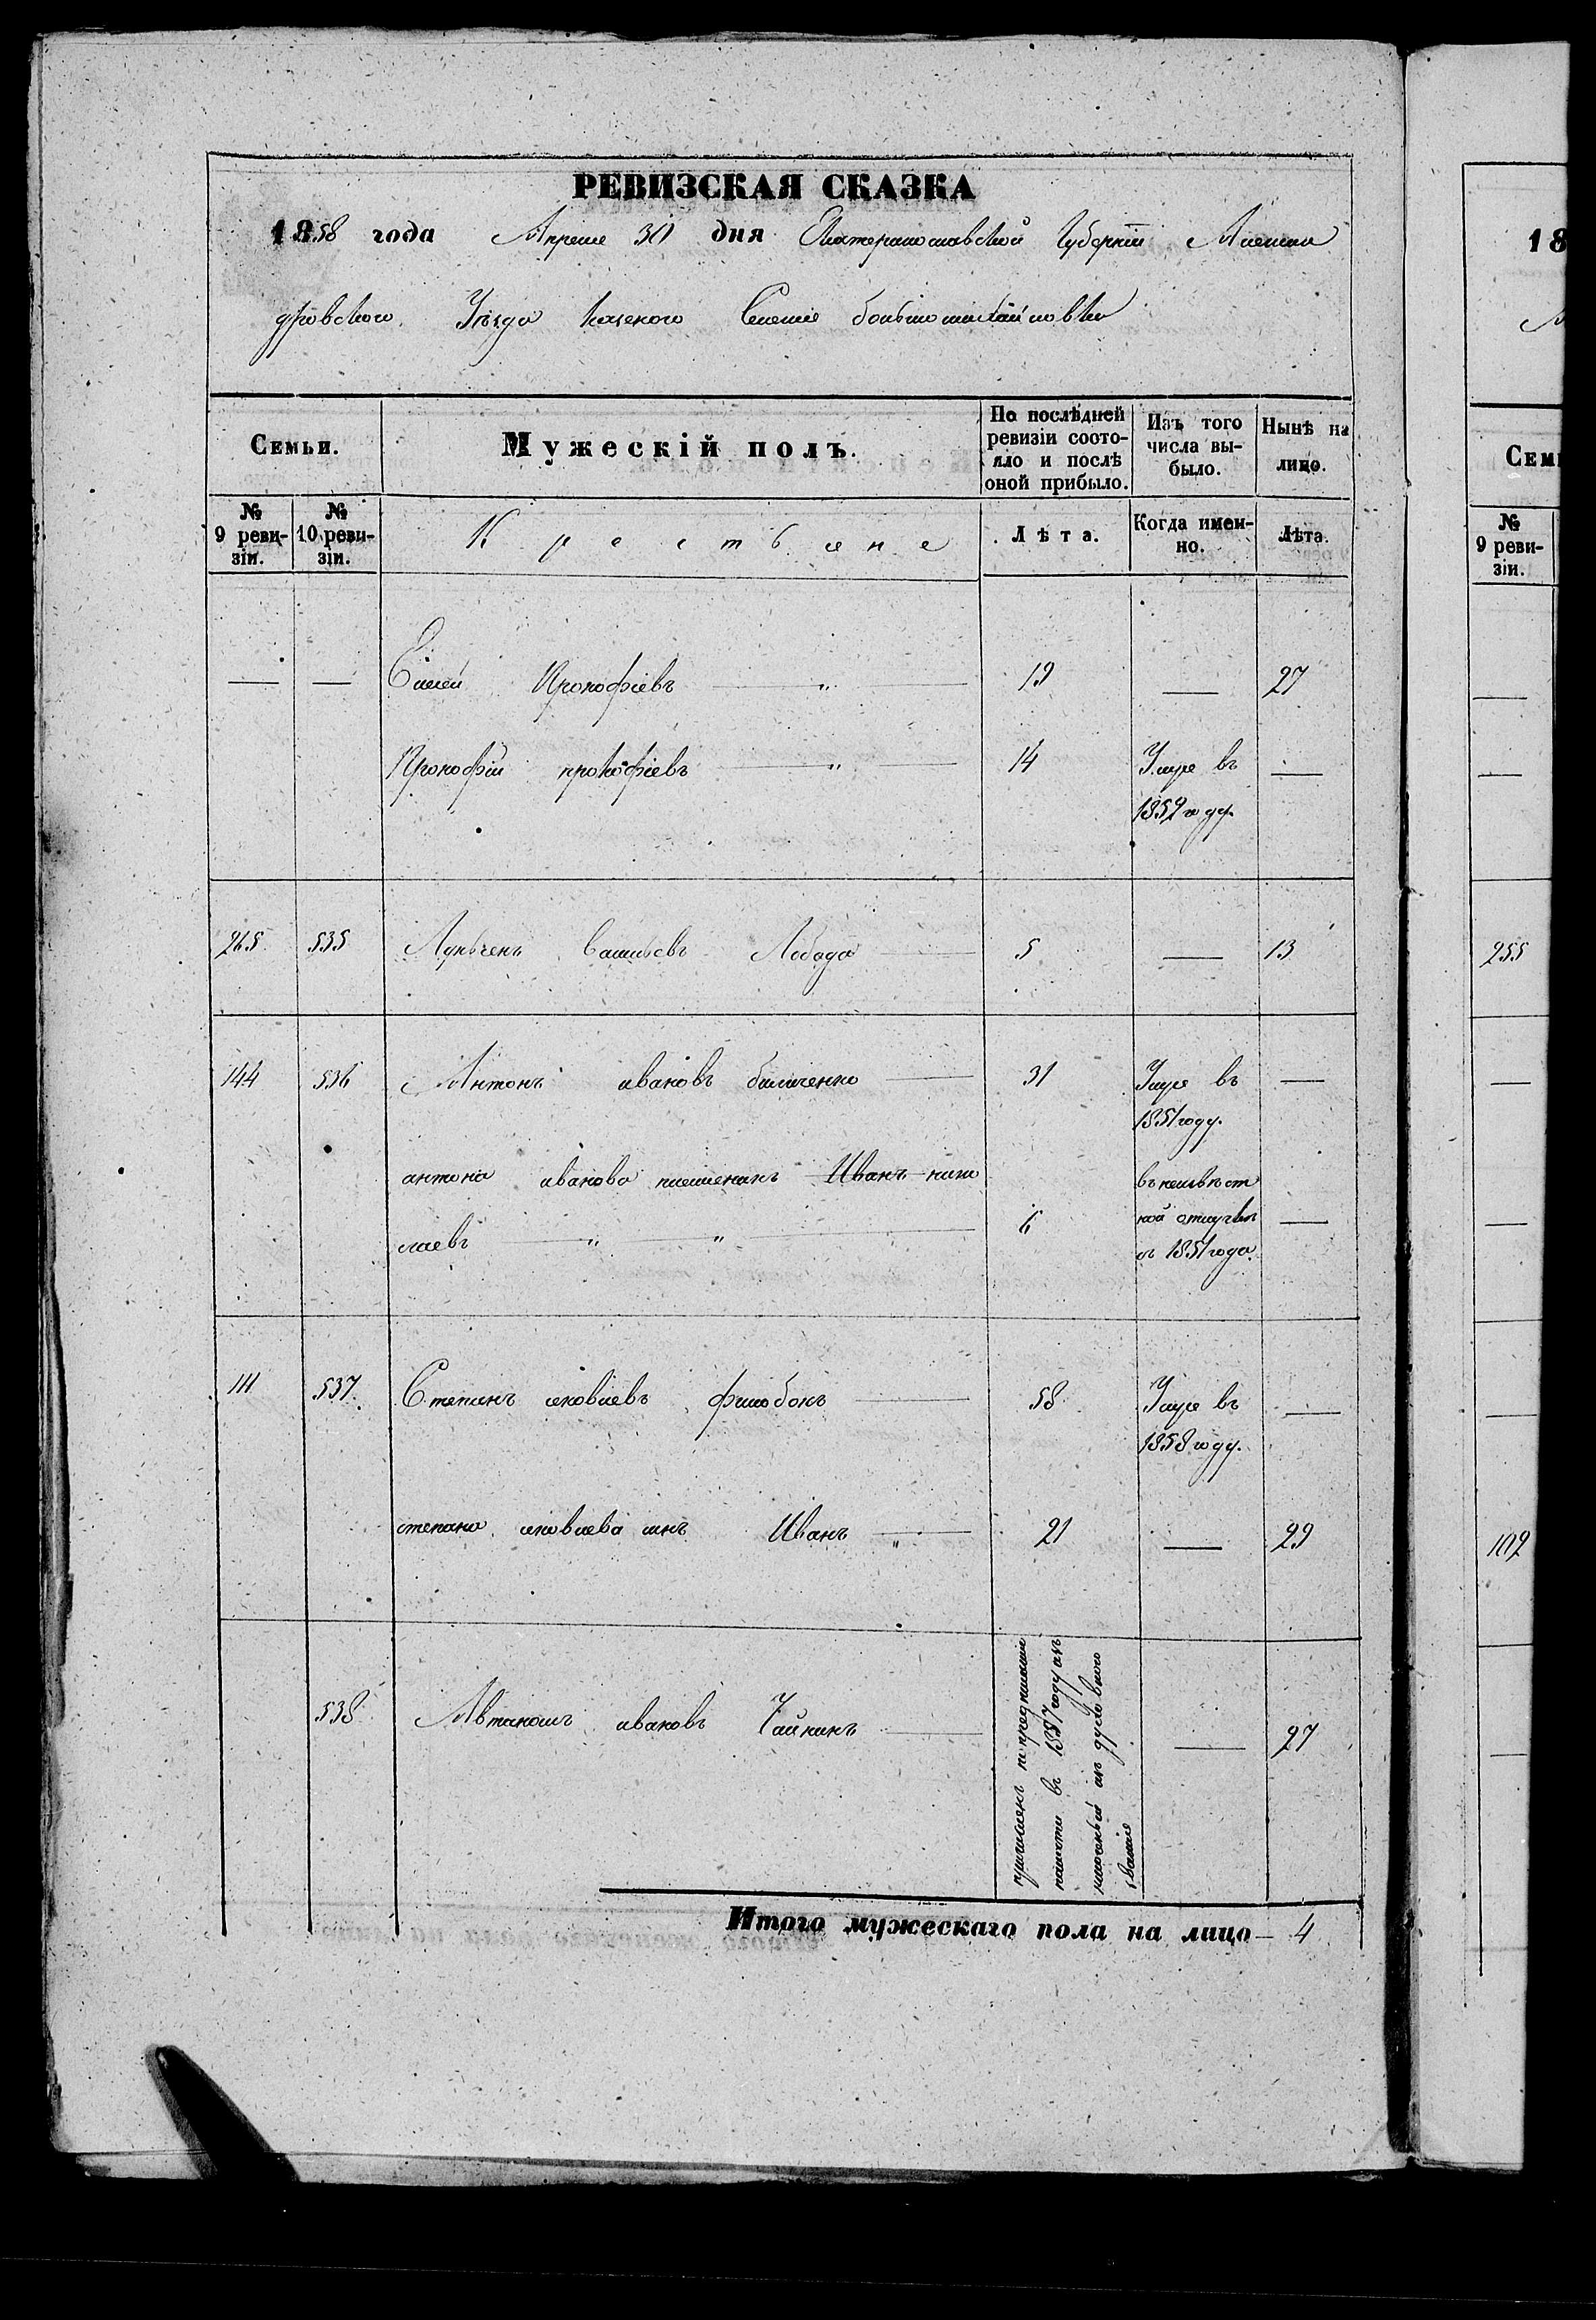 РЕВИЗСКАЯ СКАЗКА
1858 года Апреля 30 дня Екатеринославской Губернiи Алексан
дровского Уѣзда Казеного Селенiя большомихайловки
Семьи. Мужескiй полъ. По послѣдней ревизiи состояло и послѣ оной прибыло. Изъ того числа выбыло. Нынѣ на лицо.
№ 9 ревизiи. № 10 ревизiи. Крестьяне Лѣта. Когда именно. Лѣта.
— — Прокофiевъ — " — 19 — 27
Прокофiй прокофiевъ — " — 14 Умре въ —
1852 году.
265 535 Лукьченъ Васильевъ Лобода — 5 — 13
144 536 Антонъ ивановъ биличенко — 31 Умре въ —
1851 году.
антона иванова племеникъ Иванъ нико
лаевъ — " — " — 6 въ неизвѣст
ной отлучкѣ —
съ 1851 года.
111 537. Степанъ яковлевъ филобокъ — 58 Умре въ —
1858 году.
степана яковлева сынъ Иванъ — " — 21 — 29
538 Автаномъ ивановъ Чайкинъ — — 27
причисленъ по предписанiю
палаты въ 1857 году изъ
духовного
званiя
Итого мужескаго пола на лицо — 4
18
Семь
№
9 реви-
зiи.
255
102